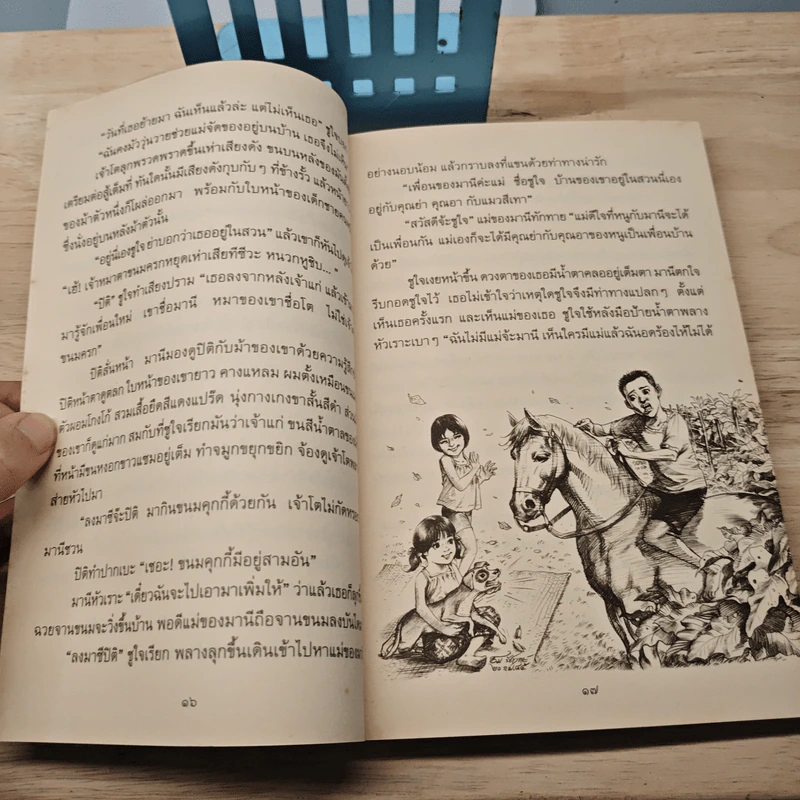 "วันที่เธอย้ายมา ฉันเห็นแล้วล่ะ แต่ไม่เห็นเธอ" ชูใจ
"ฉันคงมัววุ่นวายช่วยแม่จัดของอยู่บนบ้าน เธอจึงไม่
เจ้าโตลุกพรวดพราดขึ้นเห่าเสียงดัง ขนบนหลังของมัน
เตรียมต่อสู้เต็มที่ ทันใดนั้นมีเสียงดังกุบกับๆ ที่ข้างรั้ว แล้ว
ของม้าตัวหนึ่งก็โผล่ออกมา พร้อมกับใบหน้าของเด็กชาย
ซึ่งนั่งอยู่บนหลังม้าตัวนั้น
"อยู่นี่เองชูใจ ย่าบอกว่าเธออยู่ในสวน" แล้วเขาก็หันไป
"เฮ้! เจ้าหมาตาขนมครกหยุดเห่าเสียทีซีวะ หนวกหูชิบ..."
"ปิติ" ชูใจทำเสียงปราม "เธอลงจากหลังเจ้าแก่ แล้ว
มารู้จักเพื่อนใหม่ เขาชื่อมานี หมาของเขาชื่อโต ไม่ใช่
ขนมครก"
ปิติสั่นหน้า มานีมองดูปิติกับม้าของเขาด้วยความ
ปิติหน้าตาดูตลก ใบหน้าของเขายาว คางแหลม ผมตั้งเหมือน
ตัวผอมโกงโก้ สวมเสื้อยืดสีแดงแปร๊ด นุ่งกางเกงขาสั้นสีดำ
ของเขาก็ดูแก่มาก สมกับที่ชูใจเรียกมันว่าเจ้าแก่ ขนสีน้ำตาล
ที่หน้ามีขนหงอกขาวแซมอยู่เต็ม ทำจมูกขยุกขยิก จ้องดูเจ้าโต
ส่ายหัวไปมา
"ลงมาซีจ๊ะปิติ มากินขนมคุกกี้ด้วยกัน เจ้าโตไม่กัด
มานีชวน
ปิติทำปากเบะ "เชอะ! ขนมคุกกี้มีอยู่สามอัน"
มานีหัวเราะ "เดี๋ยวฉันจะไปเอามาเพิ่มให้" ว่าแล้วเธอก็
ฉวยจานขนมจะวิ่งขึ้นบ้าน พอดีแม่ของมานีถือจานขนมลง
"ลงมาซีปิติ" ชูใจเรียก พลางลุกขึ้นเดินเข้าไปหาแม่ของ
๑๖
อย่างนอบน้อม แล้วกราบลงที่แขนด้วยท่าทางน่ารัก
"เพื่อนของมานีค่ะแม่ ชื่อชูใจ บ้านของเขาอยู่ในสวนนี่เอง
อยู่กับคุณย่า คุณอา กับแมวสีเทา"
"สวัสดีจ้ะชูใจ" แม่ของมานีทักทาย "แม่ดีใจที่หนูกับมานีจะได้
เป็นเพื่อนกัน แม่เองก็จะได้มีคุณย่ากับคุณอาของหนูเป็นเพื่อนบ้าน
ด้วย"
ชูใจเงยหน้าขึ้น ดวงตาของเธอมีน้ำตาคลออยู่เต็มตา มานีตกใจ
รีบกอดชูใจไว้ เธอไม่เข้าใจว่าเหตุใดชูใจจึงมีท่าทางแปลกๆ ตั้งแต่
เห็นเธอครั้งแรก และเห็นแม่ของเธอ ชูใจใช้หลังมือป้ายน้ำตาพลาง
หัวเราะเบาๆ "ฉันไม่มีแม่จ้ะมานี เห็นใครมีแม่แล้วฉันอดร้องไห้ไม่ได้
๑๗